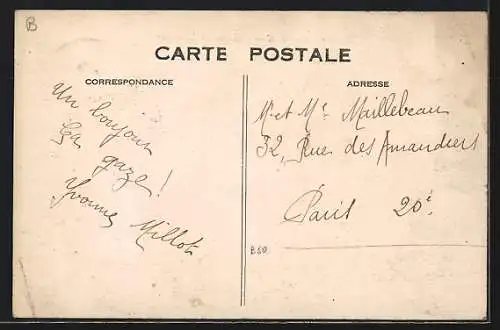 B
CARTE POSTALE
CORRESPONDANCE
Un bonjour
Ça
gaze !
Yvonne Millot
ADRESSE
Mr et Me Maillebeau
32, Rue des Amandiers
Paris 20e
B50